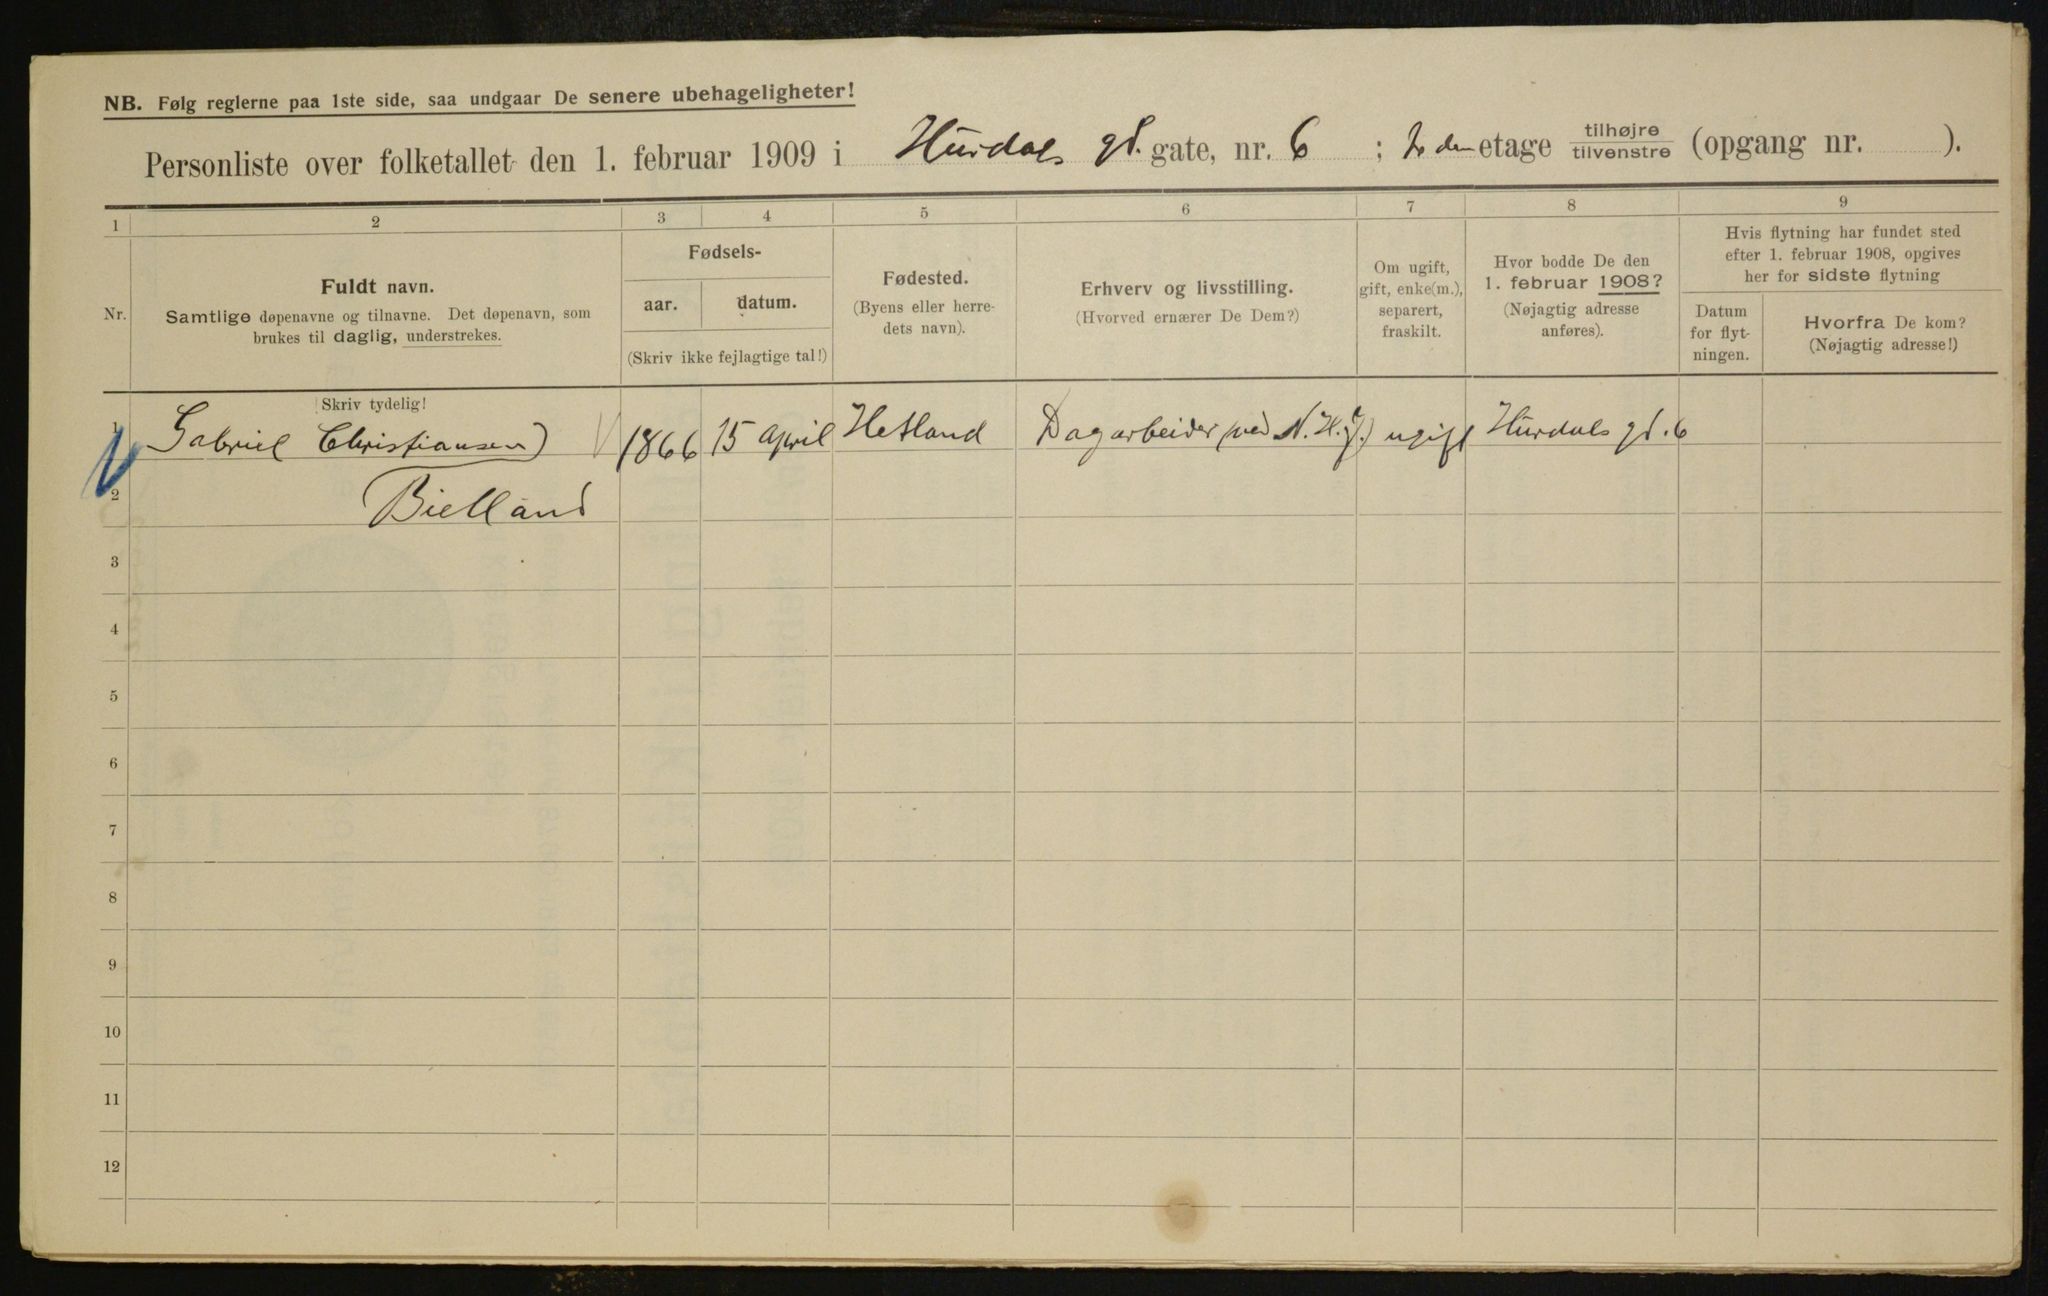 NB. Følg reglerne paa 1ste side, saa undgaar De senere ubehageligheter!
Personliste over folketallet den 1. februar 1909 i Hurdals gd. gate, nr. 6 ; 2 den etage tilhøjre tilvenstre (opgang nr. ).
1 2 3 4 5 6 7 8 9
Nr.
Fuldt navn.
Samtlige døpenavne og tilnavne. Det døpenavn, som
brukes til daglig, understrekes.
Fødsels-
aar. datum.
(Skriv ikke fejlagtige tal!)
Fødested.
(Byens eller herre-
dets navn).
Erhverv og livsstilling.
(Hvorved ernærer De Dem?)
Om ugift,
gift, enke(m.),
separert,
fraskilt.
Hvor bodde De den
1. februar 1908?
(Nøjagtig adresse
anføres).
Hvis flytning har fundet sted
efter 1. februar 1908, opgives
her for sidste flytning
Datum
for flyt-
ningen.
Hvorfra De kom?
(Nøjagtig adresse!)
Skriv tydelig!
1 Gabriel Christiansen) 1866 15 april Hetland Dagarbeider (ved N. H. J.) ugift Hurdals gd. 6
2 Bielland
3
4
5
6
7
8
9
10
11
12